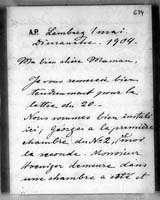 674
A.P. Lemberg 1 mai
Dimanche. 1904.
Ma bien chère Maman,
Je vous remercie bien
tendrement pour la
lettre du 20.–
Nous sommes bien installés
ici, Georges a la première
chambre du No 2, moi
la seconde. Monsieur
demeure dans
une chambre a côté et